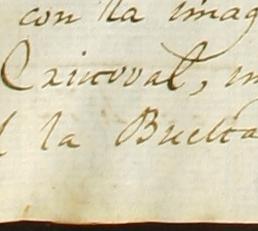 con la imag
Cristoval, m
l la Buelta